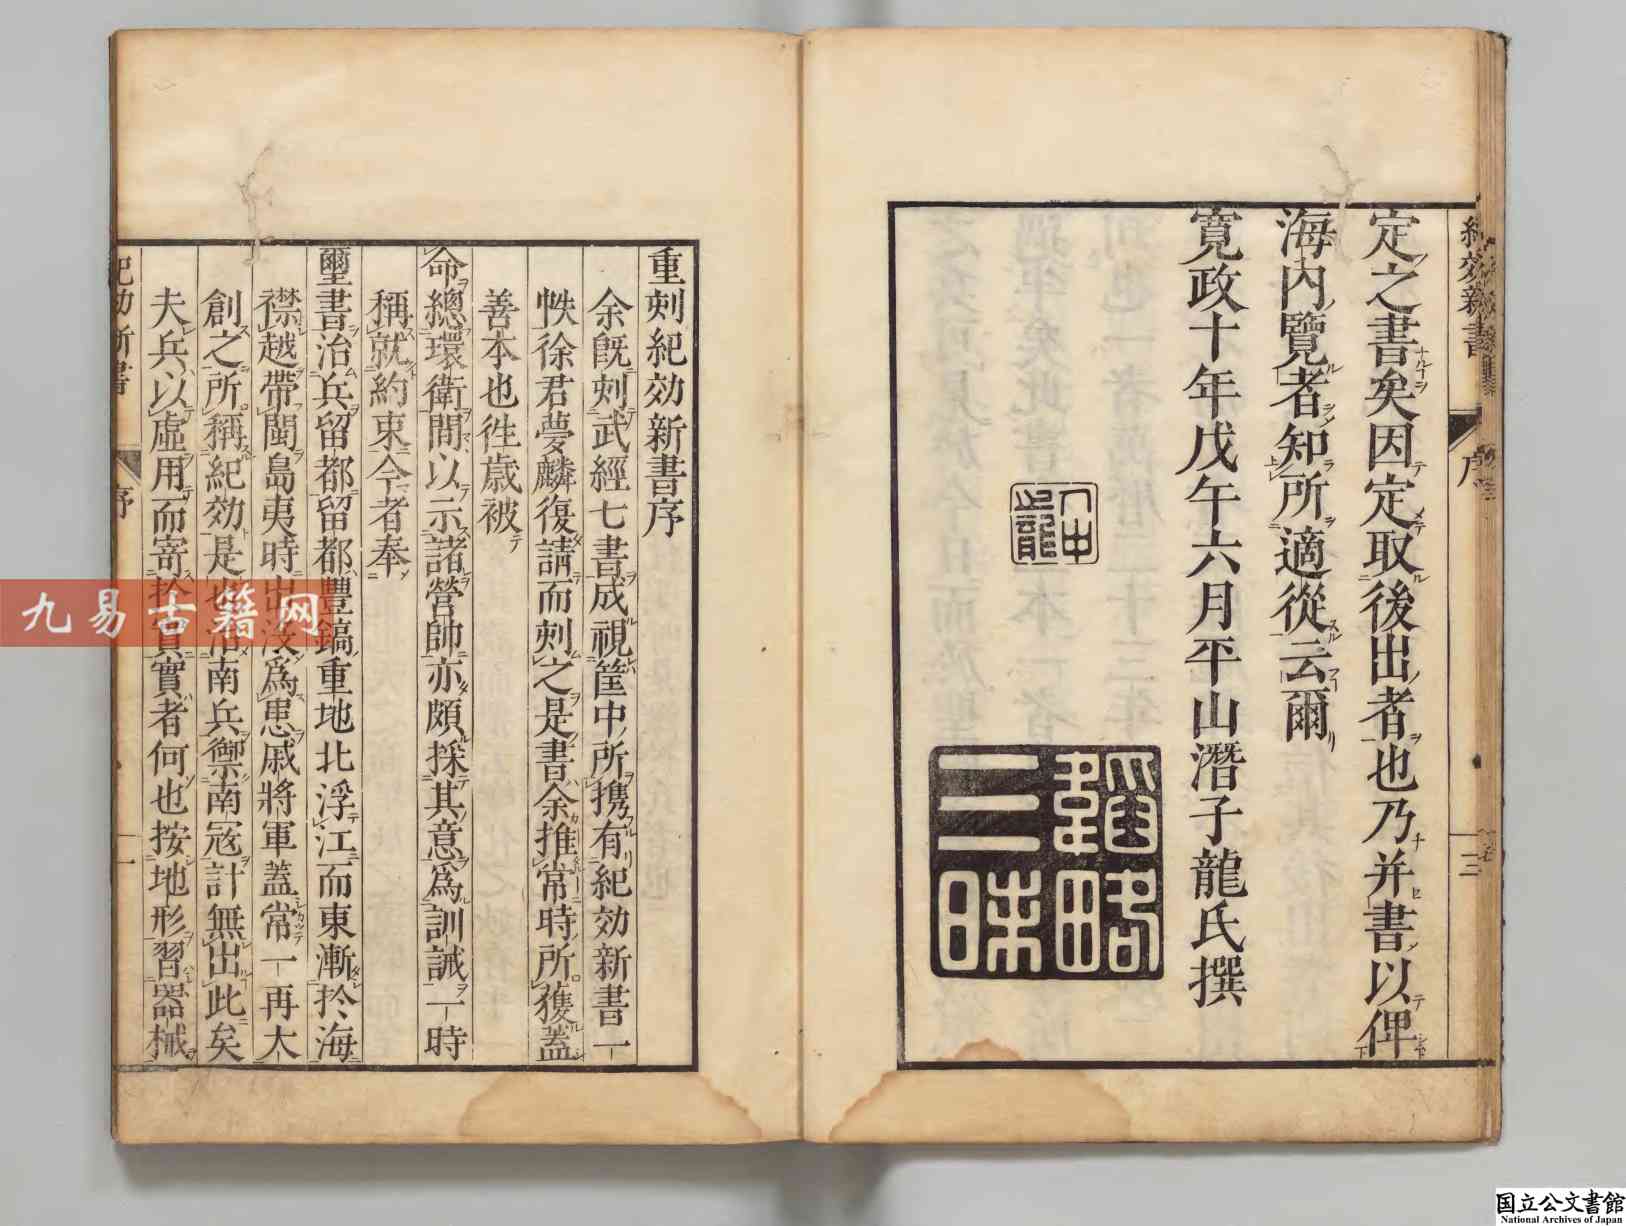 紀効新書
序
三
定之書矣因定取後出者也乃并書以俾
海内覽者知所適從云爾
寛政十年戊午六月平山潛子龍氏撰
韜略
三昧
重刻紀効新書序
余旣刻武經七書成視篋中所携有紀効新書一
帙徐君夢麟復請而刻之是書余推常時所獲蓋
善本也徃歲被
命總環衛間以示諸營帥亦頗採其意爲訓誡一時
稱就約束今者奉
璽書治兵留都留都豐鎬重地北浮江而東漸於海
襟越帶閩島夷時出沒爲患戚將軍蓋常一再大
創之所稱紀効是也沿南兵禦南冦計無出此矣
夫兵以虛用而寄於實實者何也按地形習器械
紀効新書
序
一
九易古籍网
国立公文書館
National Archives of Japan